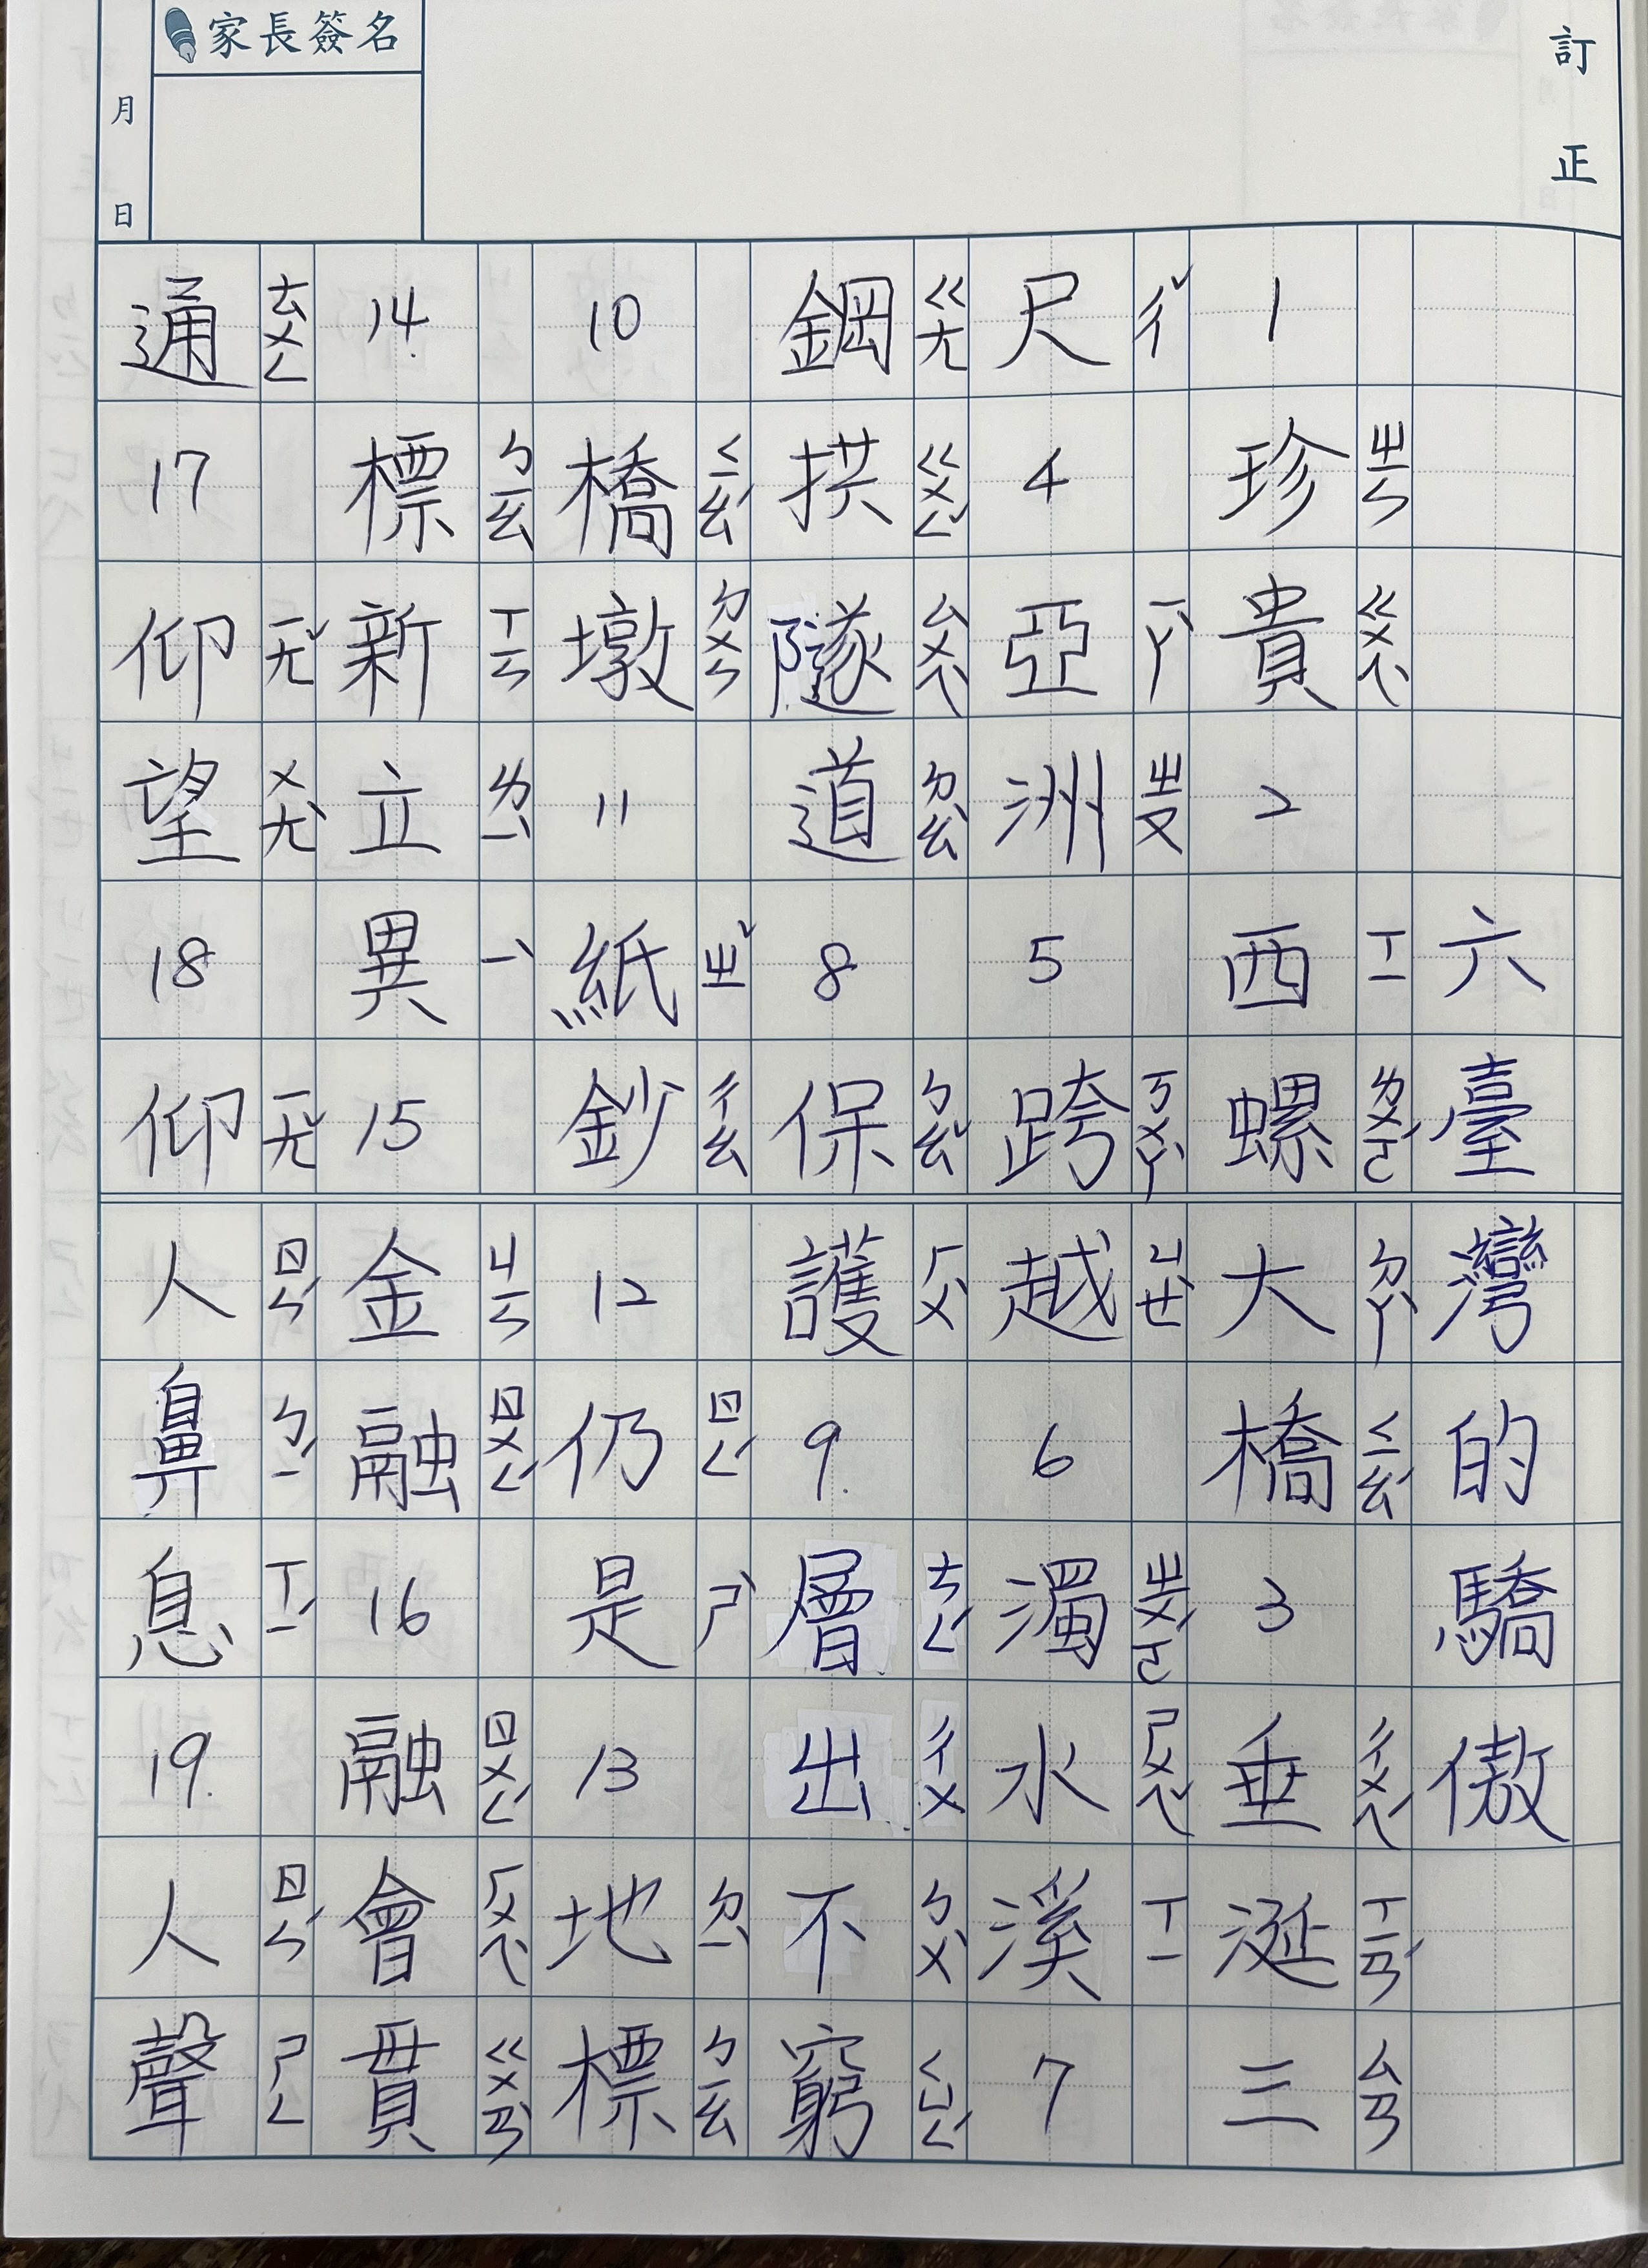 訂正
家長簽名
月 日
六臺灣的驕傲
1珍ㄓㄣ貴ㄍㄨㄟˋ2西ㄒㄧ螺ㄌㄨㄛˊ大ㄉㄚˋ橋ㄑㄧㄠˊ3垂ㄔㄨㄟˊ涎ㄒㄧㄢˊ三ㄙㄢ
尺ㄔˇ4亞ㄧㄚˋ洲ㄓㄡ5跨ㄎㄨㄚˋ越ㄩㄝˋ6濁ㄓㄨㄛˊ水ㄕㄨㄟˇ溪ㄒㄧ7
鋼ㄍㄤ拱ㄍㄨㄥˇ隧ㄙㄨㄟˋ道ㄉㄠˋ8保ㄅㄠˇ護ㄏㄨˋ9.層ㄘㄥˊ出ㄔㄨ不ㄅㄨˋ窮ㄑㄩㄥˊ
10橋ㄑㄧㄠˊ墩ㄉㄨㄣ11紙ㄓˇ鈔ㄔㄠ12仍ㄖㄥˊ是ㄕˋ13地ㄉㄧˋ標ㄅㄧㄠ
14.標ㄅㄧㄠ新ㄒㄧㄣ立ㄌㄧˋ異ㄧˋ15金ㄐㄧㄣ融ㄖㄨㄥˊ16融ㄖㄨㄥˊ會ㄏㄨㄟˋ貫ㄍㄨㄢˋ
通ㄊㄨㄥ17仰ㄧㄤˇ望ㄨㄤˋ18仰ㄧㄤˇ人ㄖㄣˊ鼻ㄅㄧˊ息ㄒㄧˊ19.人ㄖㄣˊ聲ㄕㄥ